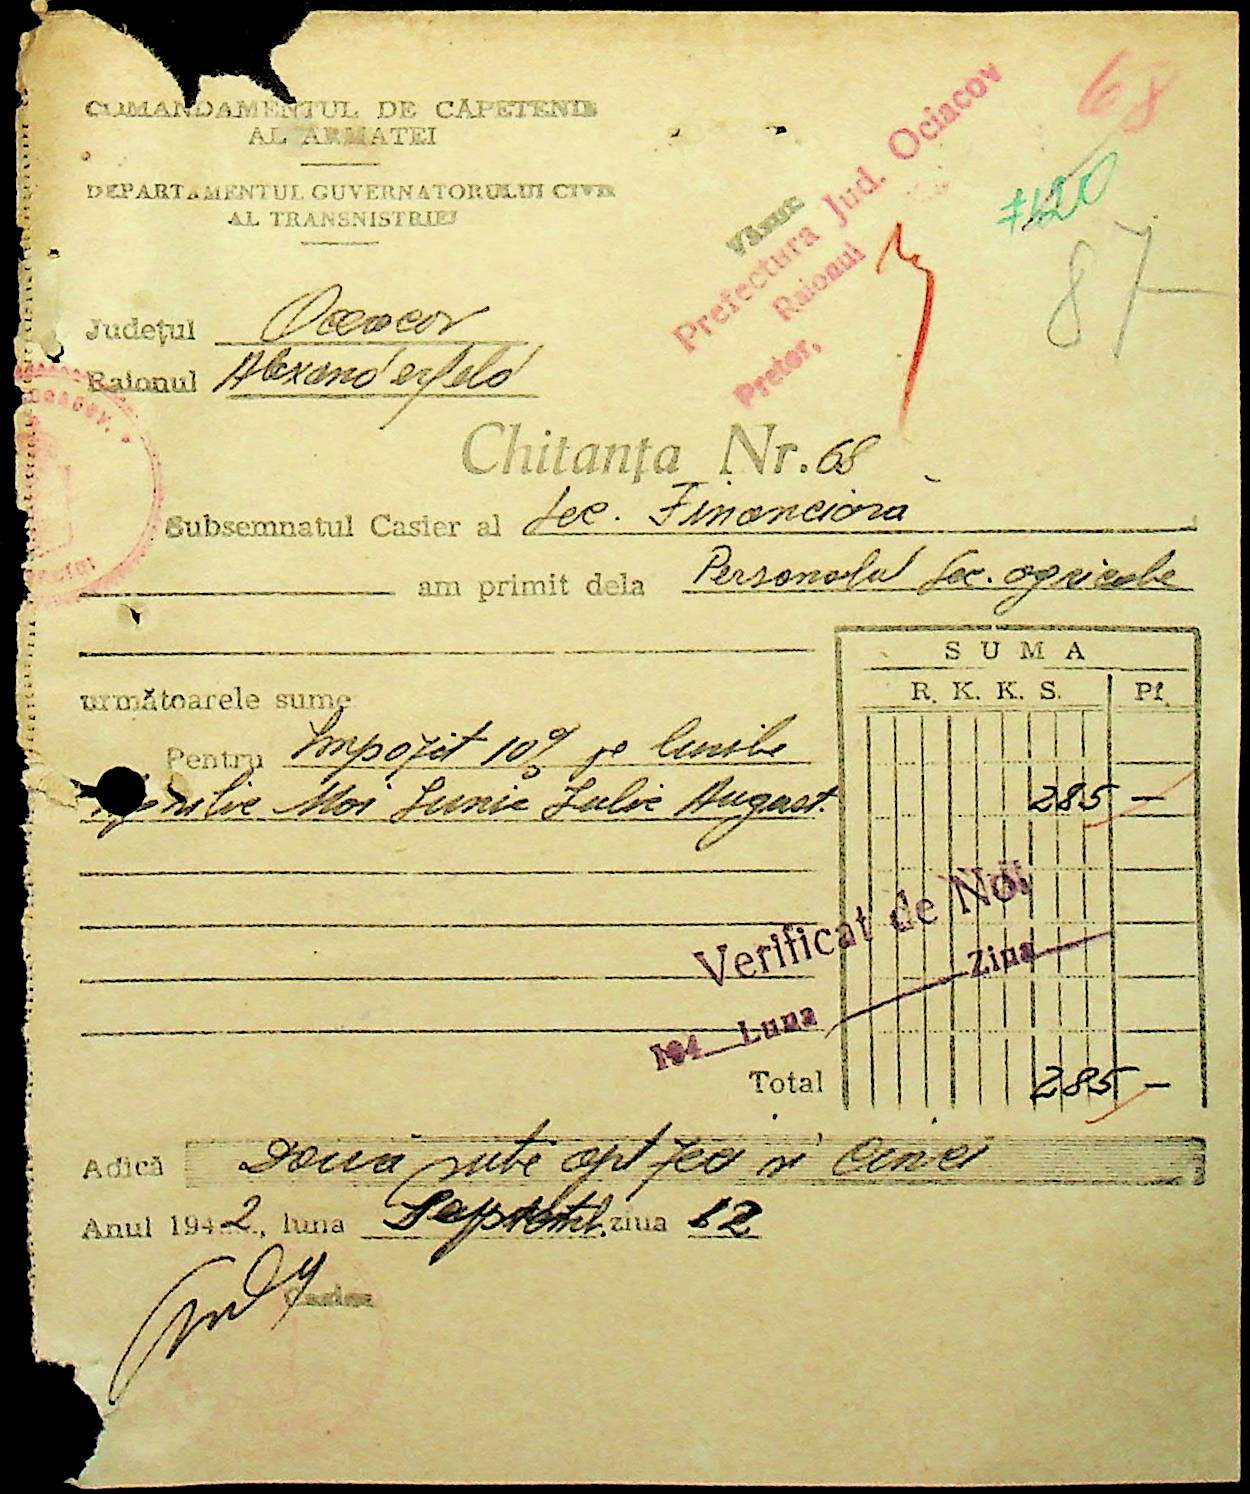 COMANDAMENTUL DE CĂPETENIE
AL ARMATEI
DEPARTAMENTUL GUVERNATORULUI CIVIL
AL TRANSNISTRIEI
68
#120
87-
Văzut
Prefectura Jud. Ociacov
Raionul
Pretor,
Județul Oceacov
Raionul Alexanderfeld
Chitanța Nr. 68
Subsemnatul Casier al Sec. Financiară
am primit dela Personalul Sec. agricole
următoarele sume
SUMA
R. K. K. S. Pf.
Pentru Impozit 10% pe lunile
Aprilie Mai Iunie Iulie August. 285 —
Verificat de Noi
194 Luna Ziua
Total 285 —
Adică Două sute opt zeci și cinci
Anul 1942, luna Septemb. ziua 12
Casier